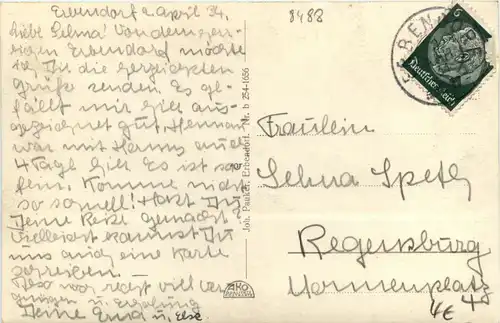 Erbendorf 2. April 34.
Liebe Selma! Von dem herr-
lichen Erbendorf möchte
ich Dir die herzlichsten
Grüße senden. Es ge-
fällt mir hier aus-
gezeichnet gut, Hermann
war mit Hanns auch
4 Tage hier Es ist so
fein. Komme nicht
so schnell! Hast Du
Deine Reise gemacht?
Vielleicht kannst Du
uns auch eine Karte
schreiben.
Also noch recht viel Ver-
gnügen u. Erholung
Deine Erna u. Else.
8488
ERBENDORF
6
Deutsches Reich
Joh. Pauker, Erbendorf. Nr. b 254-1656
AKO
Fräulein
Selma Spetz
Regensburg
Hornenplatz
4€